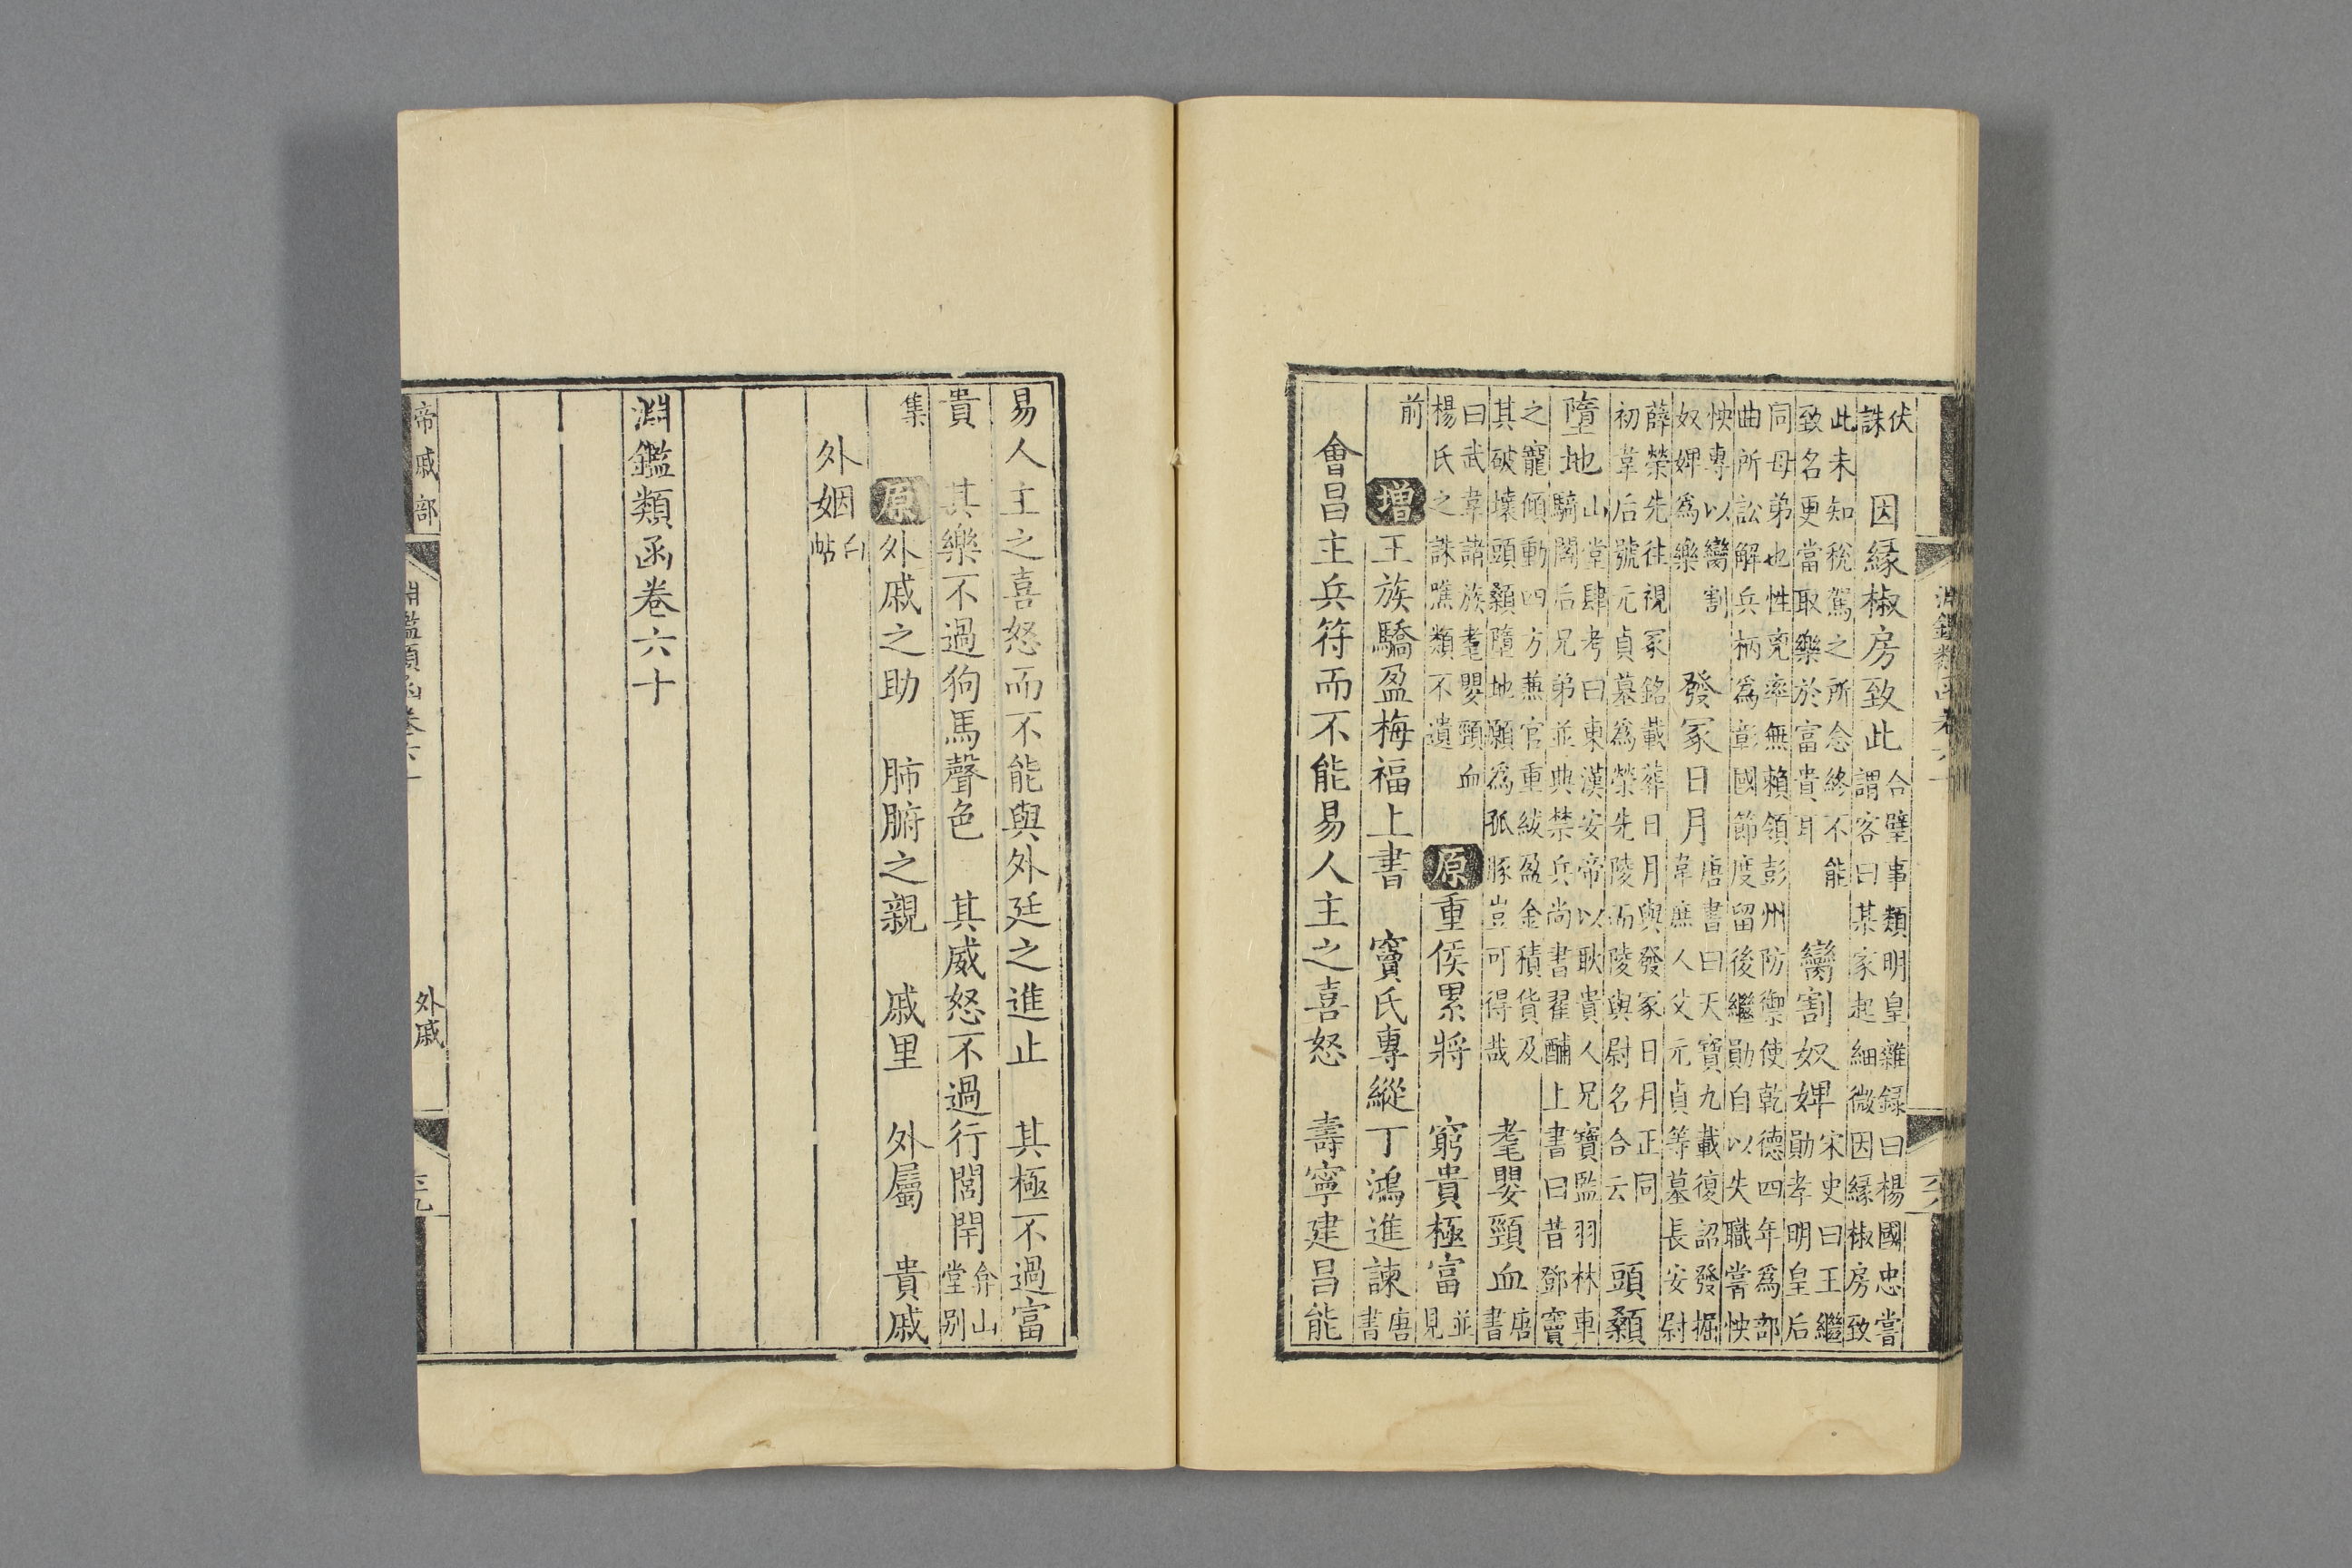 淵鑑類函卷六十
伏
誅
因緣椒房致此
合璧事類明皇雜録曰楊國忠嘗
謂客曰某家起細微因緣椒房致
此未知稅駕之所念終不能
致名更當取樂於富貴耳
臠割奴婢
宋史曰王繼
勛孝明皇后
同母弟也性兇率無賴領彭州防禦使乾德四年爲部
曲所訟解兵柄爲彰國節度留後繼勛自以失職嘗怏
怏專以臠割
奴婢爲樂
發冢日月
唐書曰天寶九載復詔發掘
韋庶人父元貞等墓長安尉
薛榮先往視冢銘載葬日月與發冢日月正同
初韋后號元貞墓爲榮先陵而陵與尉名合云
頭顙
墮地
山堂肆考曰東漢安帝以耿貴人兄寶監羽林車
騎閻后兄弟並典禁兵尚書翟酺上書曰昔鄧竇
之寵傾動四方兼官重紱盈金積貨及
其破壞頭顙墮地願爲孤豚豈可得哉
耄嬰頸血
唐
書
曰武韋諸族耄嬰頸血
楊氏之誅噍類不遺
原重侯累將　窮貴極富
並
見
前
增王族驕盈梅福上書　竇氏專縱丁鴻進諫
唐
書
會昌主兵符而不能易人主之喜怒　壽寧建昌能
易人主之喜怒而不能與外廷之進止　其極不過富
貴　其樂不過狗馬聲色　其威怒不過行閭閈
弇山
堂别
集
原外戚之助　肺腑之親　戚里　外屬　貴戚
外姻
白
帖
淵鑑類函卷六十
帝戚部
淵鑑類函卷六十
外戚